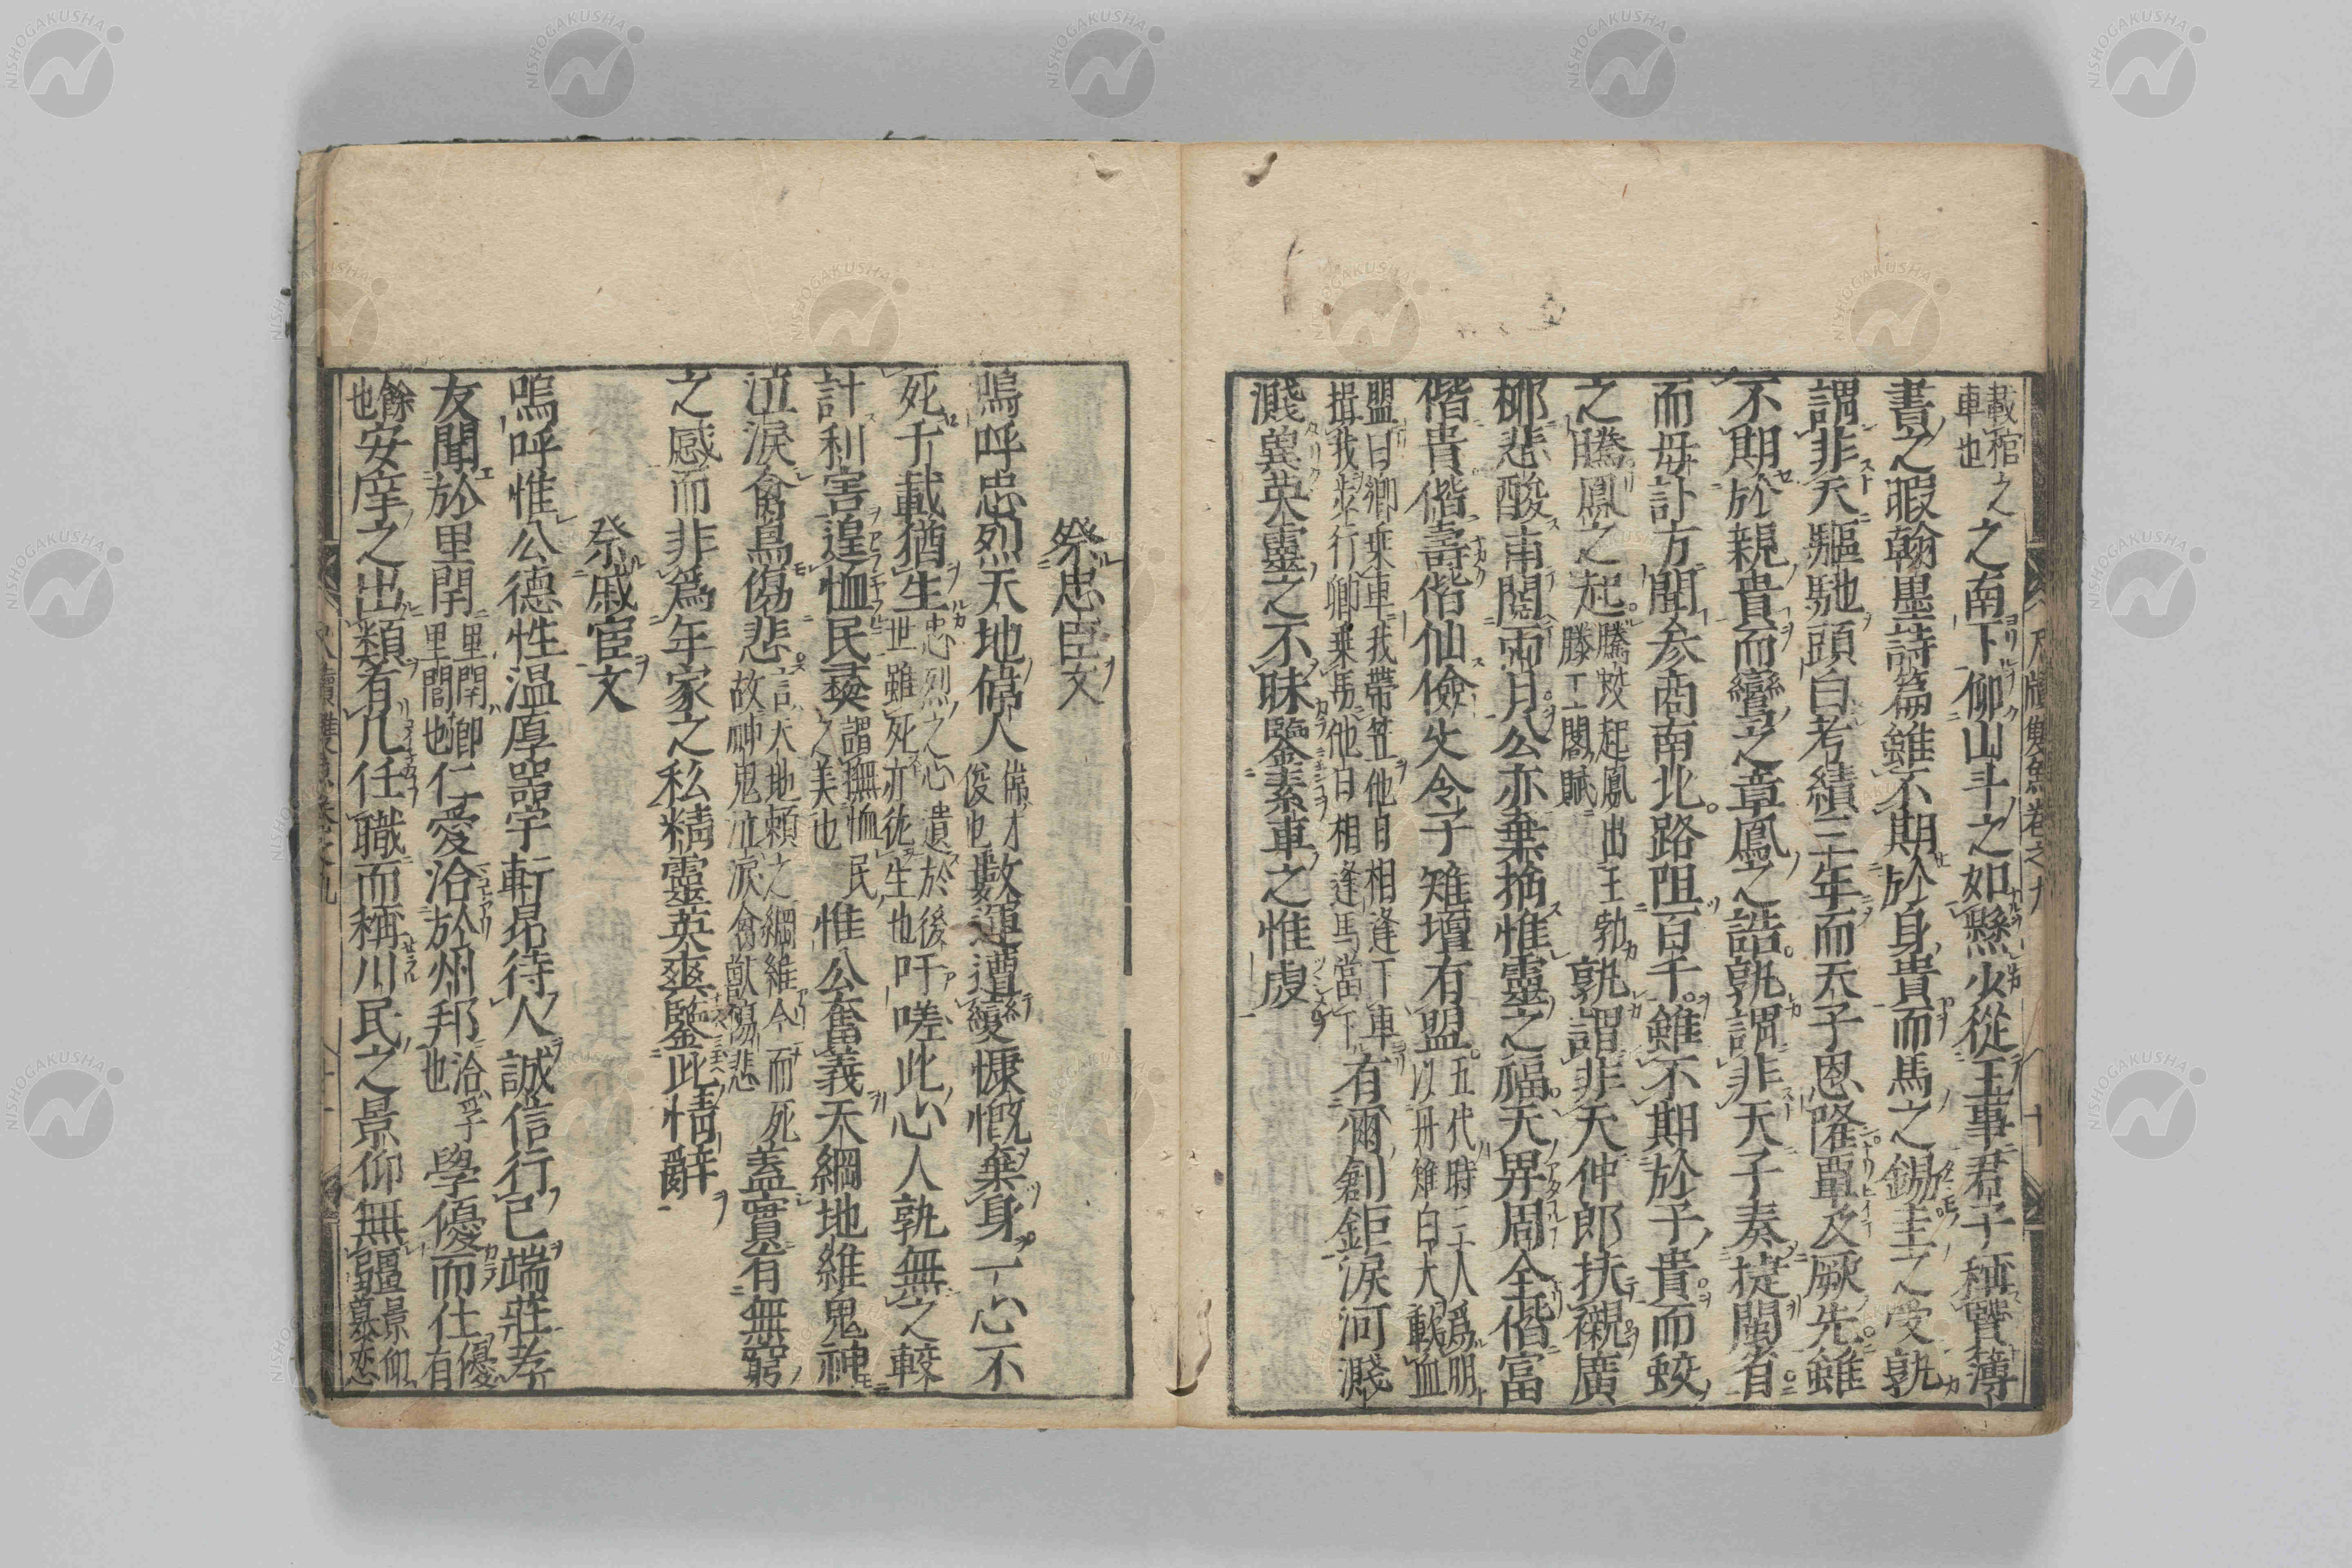 載棺之車也之南下仰山斗之如懸少從王事君子稱賢簿
書之暇翰墨詩篇雖不期於身貴而馬之錫圭之受孰
謂非天驅馳頭白考績三年而天子恩隆覃及厥先雖
不期於親貴而鸞之章鳳之誥孰謂非天子奏捷閩省
而毋訃方聞参商南北路阻百千雖不期於子貴而蛟
之騰鳳之起騰蛟起鳳出王勃滕王閣賦孰謂非天仲郎扶襯廣
柳悲酸南閩兩月公亦棄捐惟靈之福天畀周全偕富
偕貴偕壽偕仙儉失令子雉壇有盟五代時二人爲朋以丹雉白犬歃血
盟曰卿乗車我帶笠他日相逢下車揖我歩行卿乗馬他日相逢馬當下有爾劍鉅淚河濺
濺兾英靈之不昧鑒素車之惟虔
尺牘雙魚卷之九
十
祭忠臣文
嗚呼忠烈天地偉人偉才俊也數運遭纏慷慨棄身一心不
死千載猶生忠烈之心遺於後世雖死亦猶生也吁嗟此心人孰無之較
計利害遑恤民彛謂撫恤民之美也惟公奮義天綱地維鬼神
泣淚禽鳥傷悲言天地頼之綱維今而死故神鬼泣淚禽獣傷悲盖實有無窮
之感而非爲年家之私精靈英爽鑒此情辭
祭戚宦文
嗚呼惟公德性温厚器宇軒昂待人誠信行己端莊孝
友聞於里閈里閈卽里閭也仁愛洽於州邦洽孚也學優而仕優有
餘也安庠之出類有几任職而稱川民之景仰無疆景仰慕恋
尺牘雙魚卷之九
十一